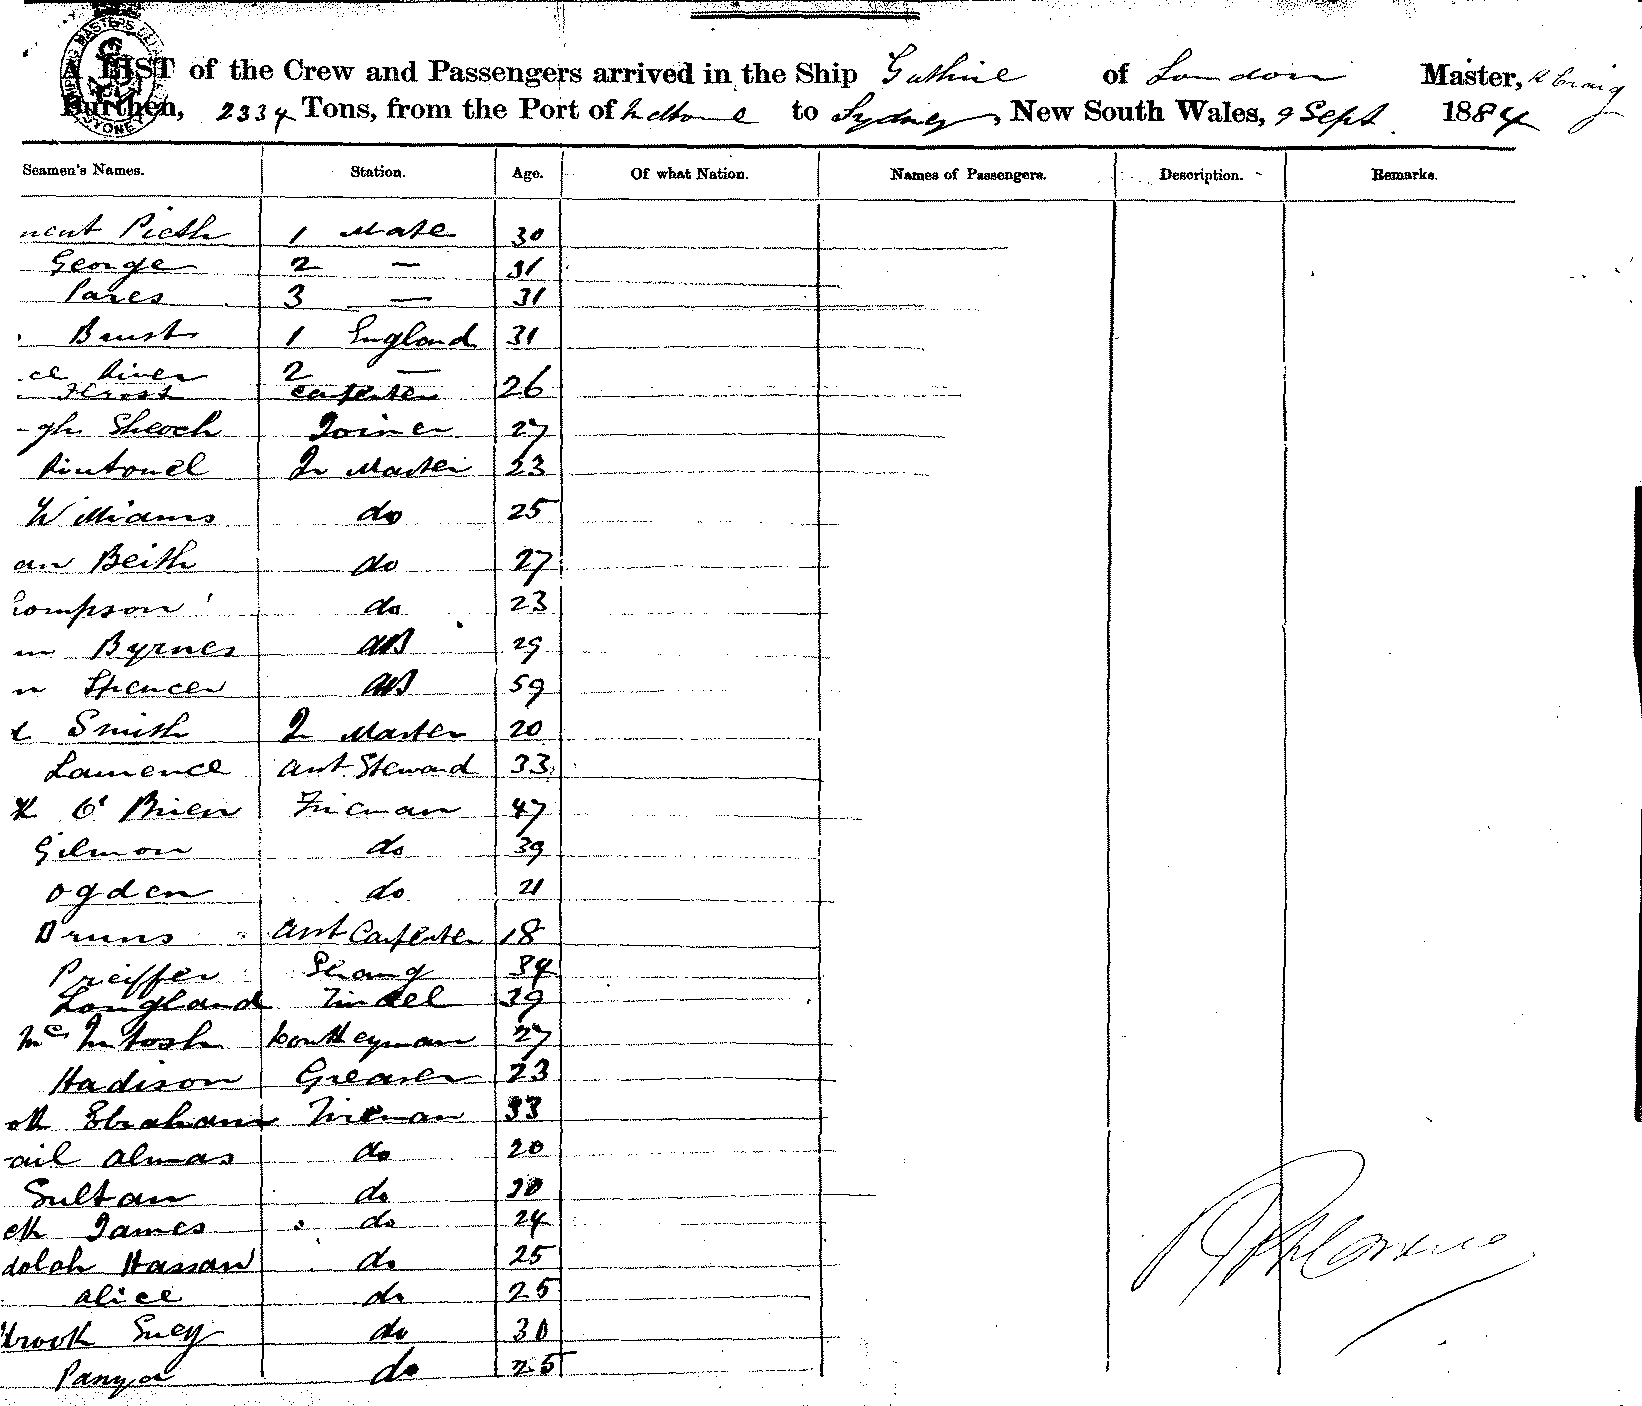 A LIST of the Crew and Passengers arrived in the Ship Guthrie of London Master, R Craig
Burthen, 2334 Tons, from the Port of Melbourne to Sydney, New South Wales, 9 Sept 1884
Seamen's Names. Station. Age. Of what Nation. Names of Passengers. Description. Remarks.
nent Pieth 1 Mate 30
George 2 — 31
Pares 3 — 31
Baust 1 England 31
River 2 —
Carpenter 26
gh Sheoch Joiner 27
Rintouel Qr Master 23
Williams do 25
an Beith do 27
Compson do 23
m Byrnes AB 29
n Spencer AB 59
Smith Qr Master 20
Lawrence asst Steward 33
k O'Brien Fireman 47
Gilmon do 39
Ogden do 21
Bruns asst Carpenter 18
Preiffer Serang 34
Longland Tindel 39
McIntosh Donkeyman 27
Hadison Greaser 23
ok Ebraham Fireman 33
ail Almas do 20
Sultan do 30
ck James do 24
dolah Hassan do 25
Alice do 25
brook Sucy do 30
Panya do 25